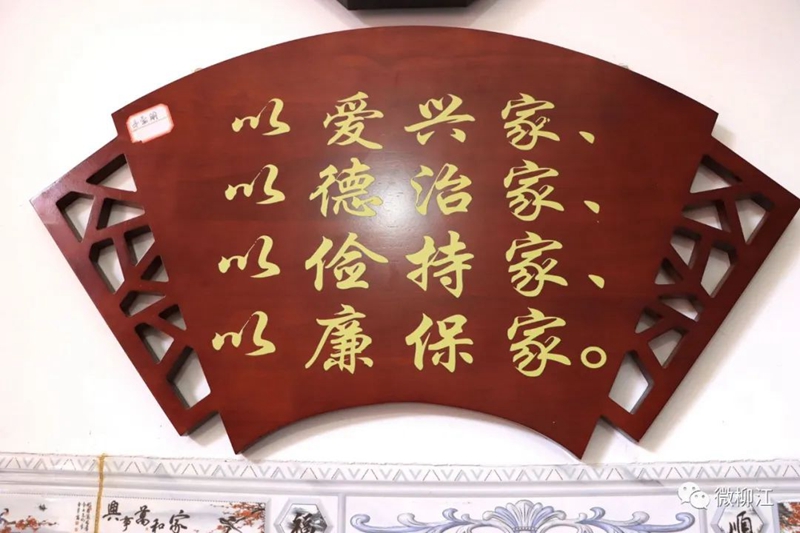 以爱兴家、
以德治家、
以俭持家、
以廉保家。
興事萬和家
福
順
微柳江